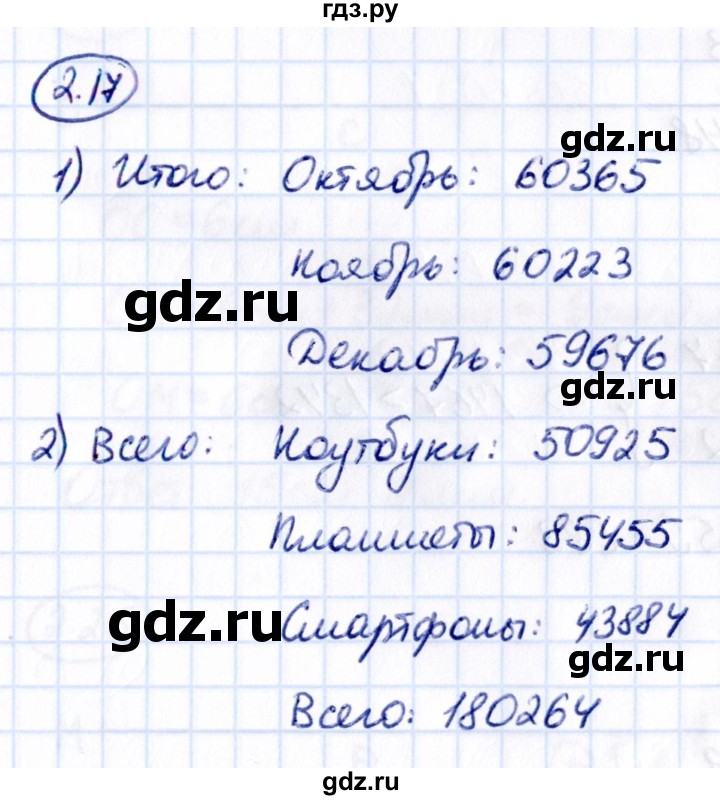 гдз.ру
2.17
gdz.ru
1) Итого: Октябрь: 60365
Ноябрь: 60223
gdz.ru
Декабрь: 59676
gdz.ru
2) Всего: Ноутбуки: 50925
Планшеты: 85455
gdz.ru
Смартфоны: 43884
gdz.ru
Всего: 180264
gdz.ru